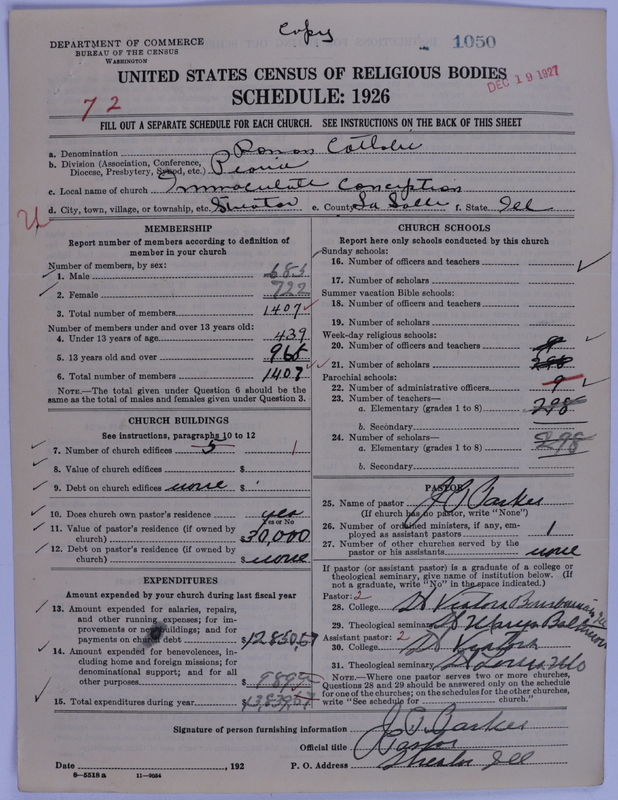 Copy
DEPARTMENT OF COMMERCE
BUREAU OF THE CENSUS
WASHINGTON
1050
UNITED STATES CENSUS OF RELIGIOUS BODIES
DEC 19 1927
SCHEDULE: 1926
72
FILL OUT A SEPARATE SCHEDULE FOR EACH CHURCH. SEE INSTRUCTIONS ON THE BACK OF THIS SHEET
a. Denomination Roman Catholic
b. Division (Association, Conference, Diocese, Presbytery, Synod, etc.) Peoria
c. Local name of church Immaculate Conception
d. City, town, village, or township, etc. Streator e. County La Salle f. State Ill
MEMBERSHIP
Report number of members according to definition of
member in your church
Number of members, by sex:
1. Male 685
2. Female 722
3. Total number of members 1407
Number of members under and over 13 years old:
4. Under 13 years of age 439
5. 13 years old and over 968
6. Total number of members 1407
NOTE.—The total given under Question 6 should be the
same as the total of males and females given under Question 3.
CHURCH BUILDINGS
See instructions, paragraphs 10 to 12
7. Number of church edifices 5 1
8. Value of church edifices $
9. Debt on church edifices none $
10. Does church own pastor's residence yes
Yes or No
11. Value of pastor's residence (if owned by
church) $30,000
12. Debt on pastor's residence (if owned by
church) $none
EXPENDITURES
Amount expended by your church during last fiscal year
13. Amount expended for salaries, repairs,
and other running expenses; for im-
provements or new buildings; and for
payments on church debt $
14. Amount expended for benevolences, in-
cluding home and foreign missions; for
denominational support; and for all
other purposes $
15. Total expenditures during year $
CHURCH SCHOOLS
Report here only schools conducted by this church
Sunday schools:
16. Number of officers and teachers
17. Number of scholars
Summer vacation Bible schools:
18. Number of officers and teachers
19. Number of scholars
Week-day religious schools:
20. Number of officers and teachers 9
21. Number of scholars 298
Parochial schools:
22. Number of administrative officers 9
23. Number of teachers—
a. Elementary (grades 1 to 8) 298
b. Secondary
24. Number of scholars—
a. Elementary (grades 1 to 8) 298
b. Secondary
PASTOR
25. Name of pastor J P Parker
(If church has no pastor, write "None")
26. Number of ordained ministers, if any, em-
ployed as assistant pastors 1
27. Number of other churches served by the
pastor or his assistants none
If pastor (or assistant pastor) is a graduate of a college or
theological seminary, give name of institution below. (If
not a graduate, write "No" in the space indicated.)
Pastor: 2
28. College St Viators
29. Theological seminary St Marys Baltimore
Assistant pastor: 2
30. College St Viators
31. Theological seminary St Louis Mo
NOTE.—Where one pastor serves two or more churches,
Questions 28 and 29 should be answered only on the schedule
for one of the churches; on the schedules for the other churches,
write "See schedule for church."
Signature of person furnishing information J P Parker
Official title Pastor
Date , 192 P. O. Address Streator Ill
8-5518a 11-9054